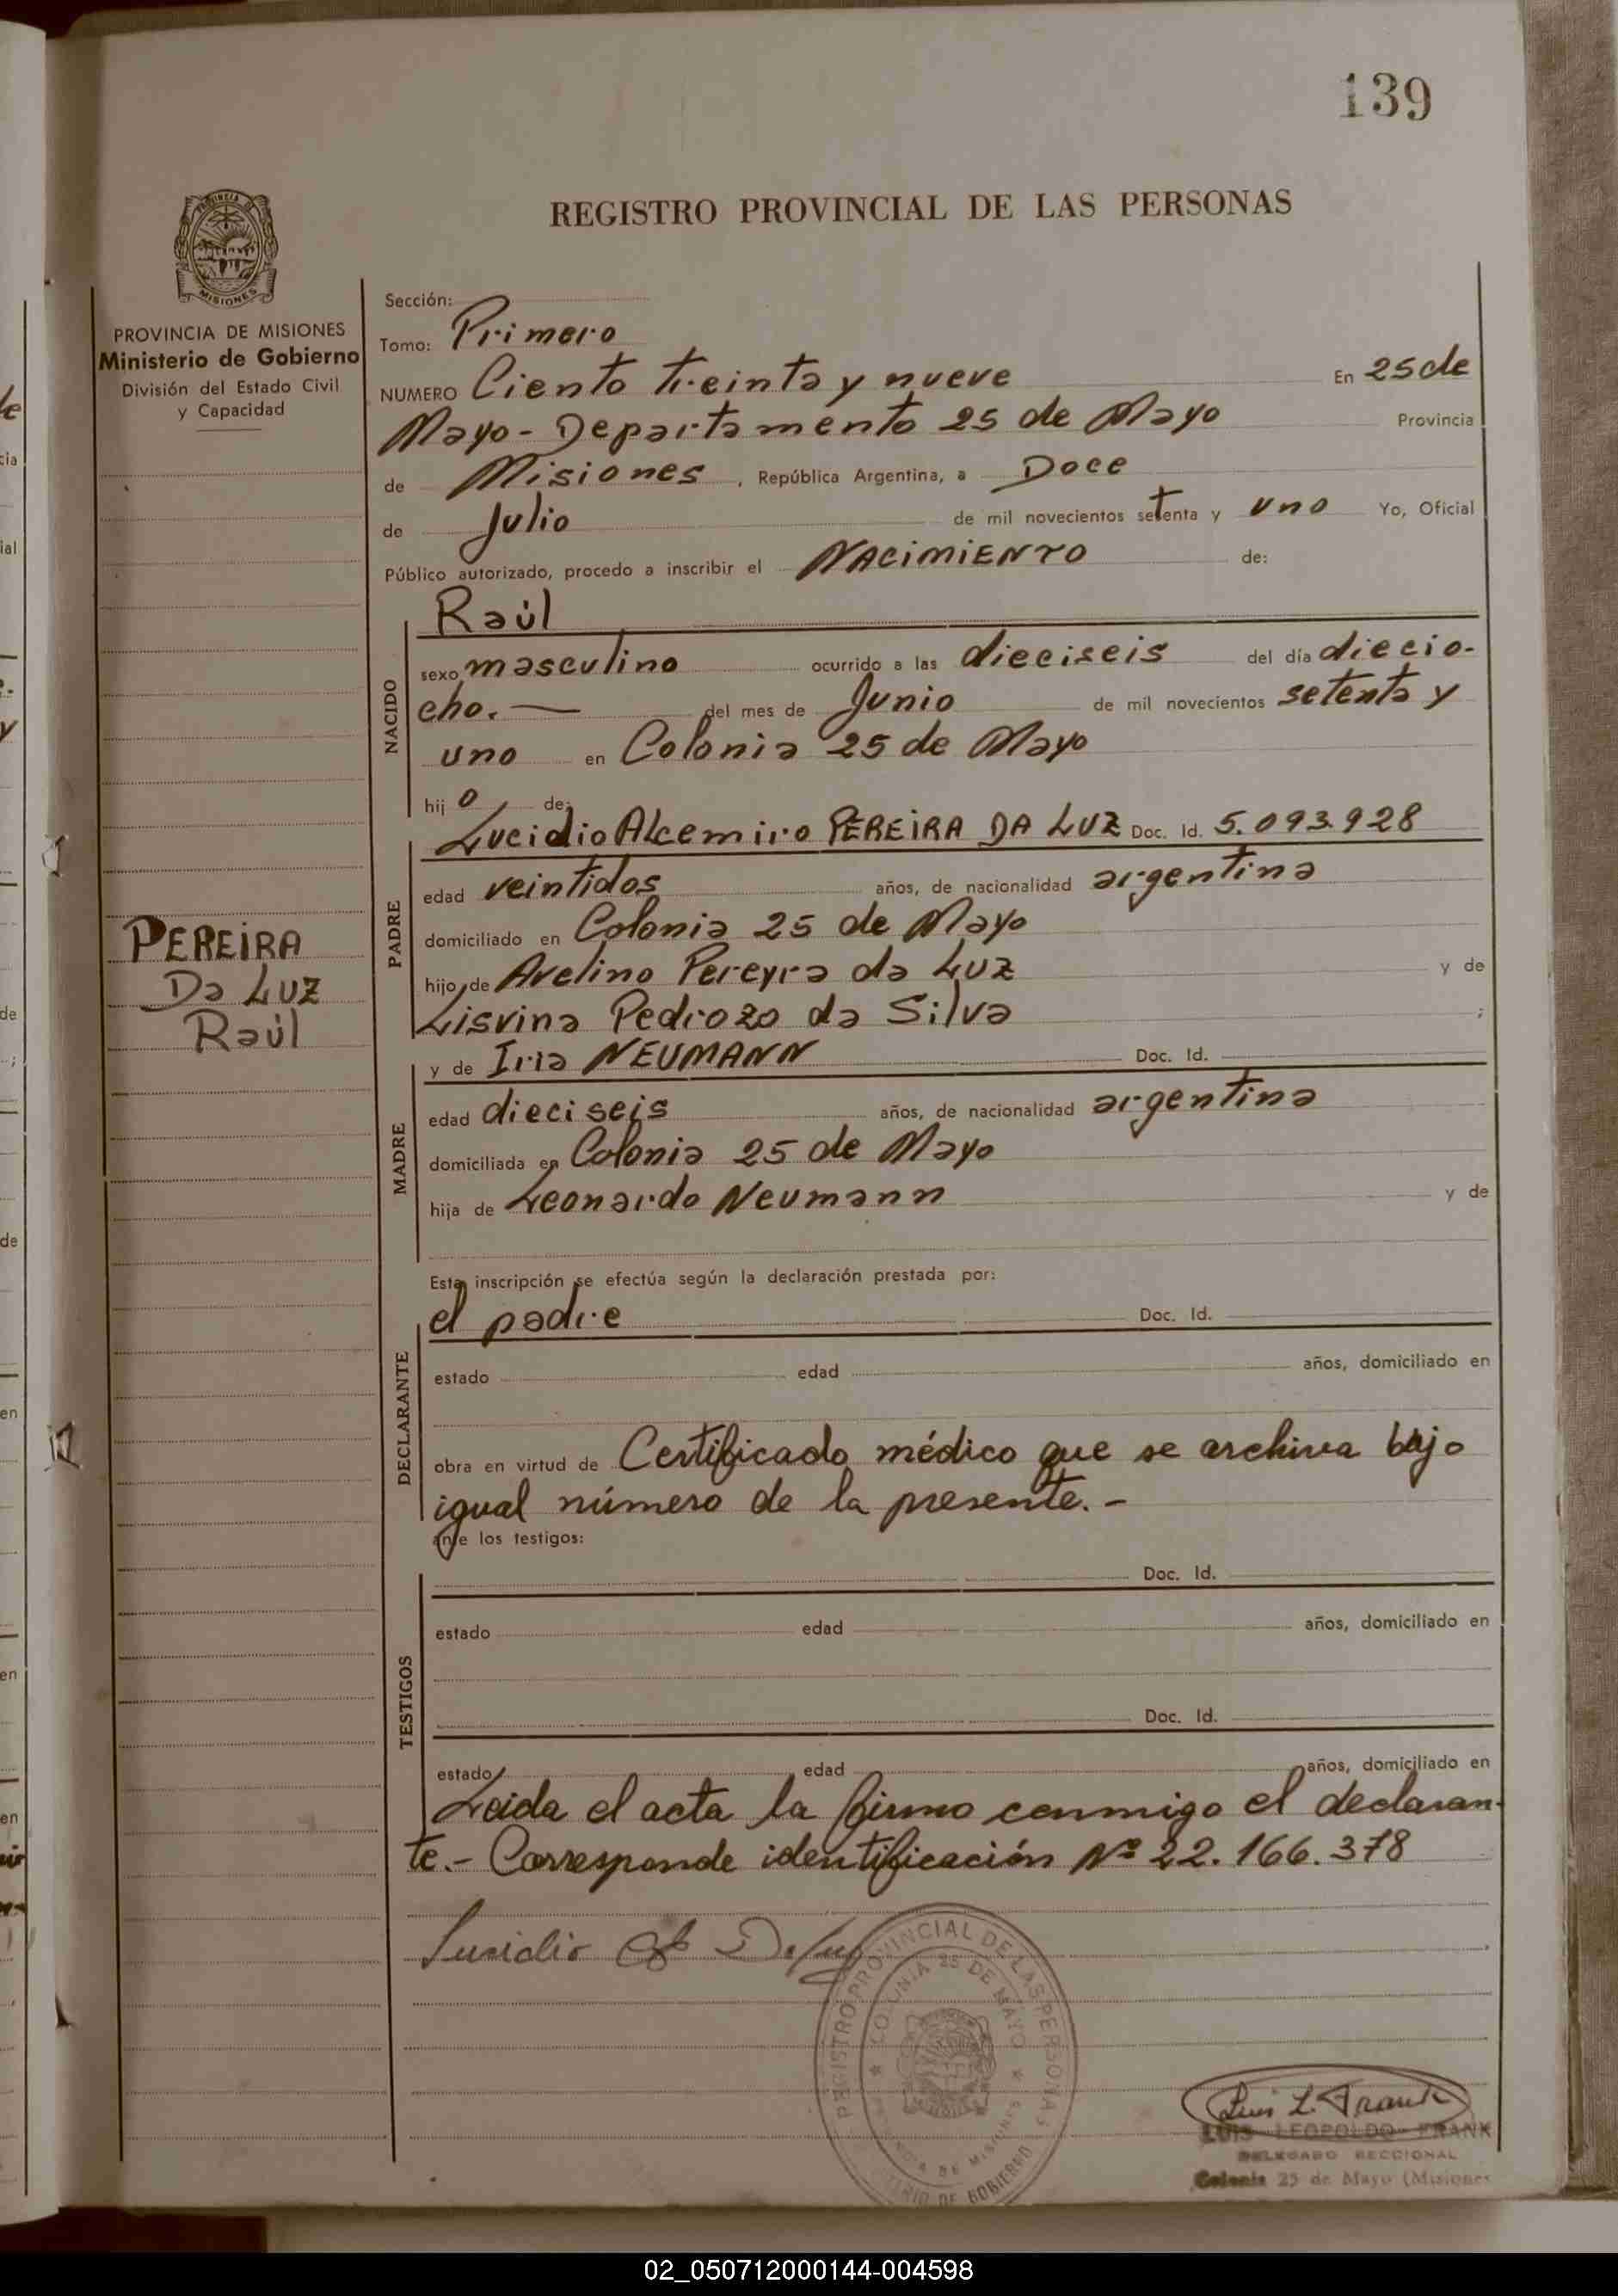 139
PROVINCIA DE MISIONES
REGISTRO PROVINCIAL DE LAS PERSONAS
PROVINCIA DE MISIONES
Ministerio de Gobierno
División del Estado Civil
y Capacidad
Sección:
Tomo: Primero
NUMERO Ciento treinta y nueve En 25 de
Mayo - Departamento 25 de Mayo Provincia
de Misiones, República Argentina, a Doce
de Julio de mil novecientos setenta y uno Yo, Oficial
Público autorizado, procedo a inscribir el NACIMIENTO de:
NACIDO
Raúl
sexo masculino ocurrido a las dieciseis del día diecio-
cho. — del mes de Junio de mil novecientos setenta y
uno en Colonia 25 de Mayo
hijo de:
PADRE
Lucidio Alcemiro PEREIRA DA LUZ Doc. Id. 5.093.928
edad veintidos años, de nacionalidad argentina
domiciliado en Colonia 25 de Mayo
hijo de Avelino Pereyra da Luz y de
Lisvina Pedrozo da Silva ;
PEREIRA
Da LUZ
Raúl
MADRE
y de Iria NEUMANN Doc. Id.
edad dieciseis años, de nacionalidad argentina
domiciliada en Colonia 25 de Mayo
hija de Leonardo Neumann y de
Esta inscripción se efectúa según la declaración prestada por:
DECLARANTE
el padre Doc. Id.
estado edad años, domiciliado en
obra en virtud de Certificado médico que se archiva bajo
igual número de la presente. -
ante los testigos:
TESTIGOS
Doc. Id.
estado edad años, domiciliado en
Doc. Id.
estado edad años, domiciliado en
Leida el acta la firmo conmigo el declaran-
te. - Corresponde identificación Nº 22.166.378
REGISTRO PROVINCIAL DE LAS PERSONAS
COLONIA 25 DE MAYO
DE MISIONES
DE GOBIERNO
Luis L. Frank
LUIS LEOPOLDO FRANK
DELEGADO SECCIONAL
Colonia 25 de Mayo (Misiones
02_050712000144-004598